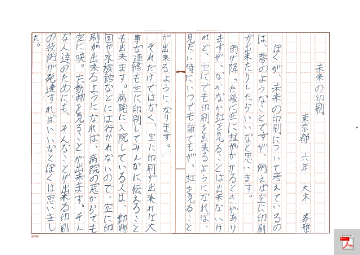 未来の印刷
東京都 六年 大木
ぼくが、未来の印刷について考えているの
は、夢のようなことですが、例えば空に印刷
が出来たりしたらいいなと思います。
雨が降った後に空に虹がかかるときがあり
ますが、なかなか虹を見ることは出来ないけ
れど、空にでも印刷を出来るようになれば、
見たい時にいつでも自由でもが、虹を見ること
が出来るようになります。
それだけではなく、空に印刷が出来れば大
事な連絡も空に印刷してみんなに伝えること
も出来ます。病院に入院している人は、動物
園や水族館などには行かれないので、空に印
刷が出来るようになれば、病院の窓からでも
空に映った動物を見ることが出来ます。そん
な人達のためにも、そんなことが出来る印刷
の技術が発達すればいいなとぼくは思いまし
た。